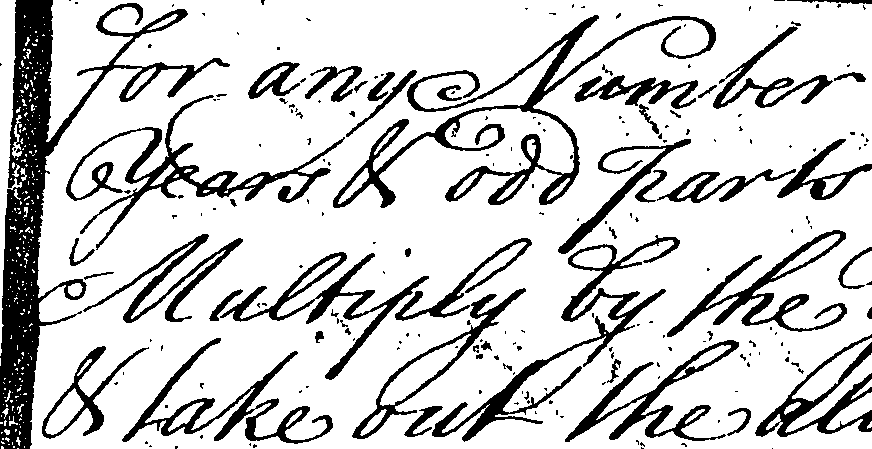 For any Number
Years & odd parts
Multiply by the
& take out the